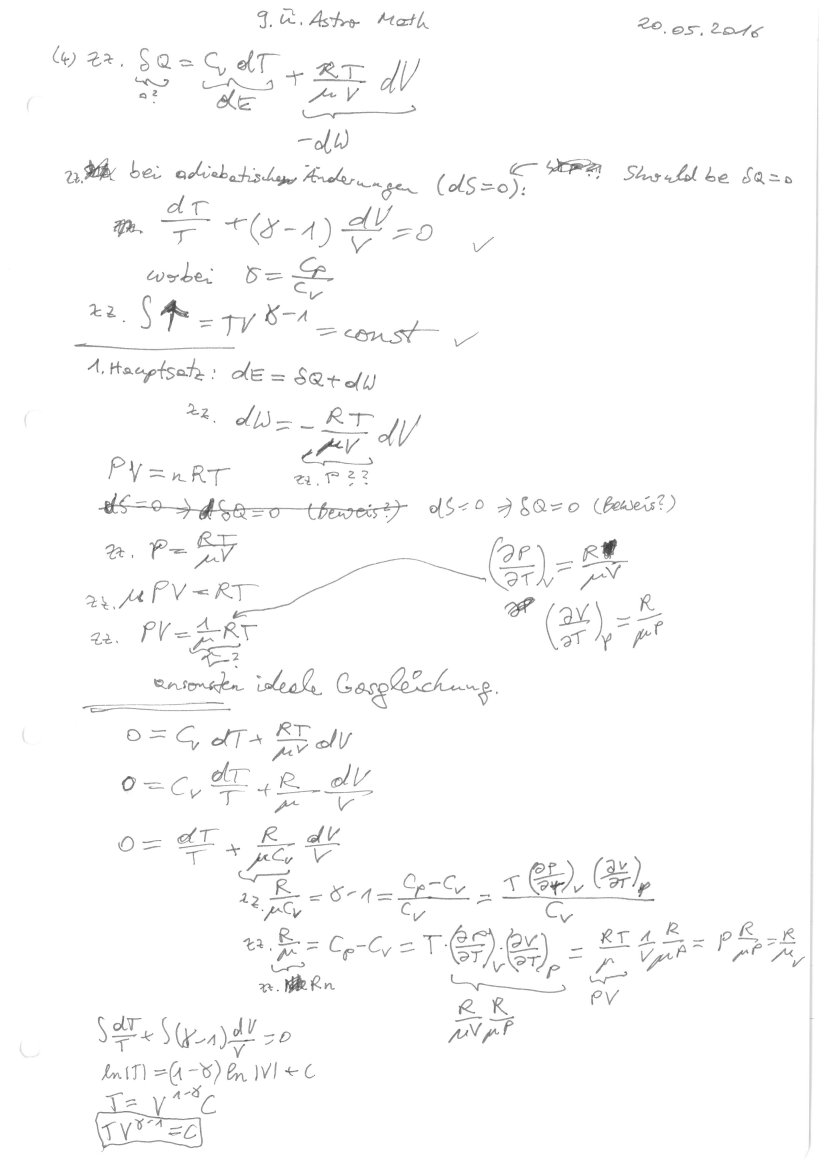 9. Ü. Astro Math 20.05.2016
(4) zz. δQ = C_v dT + RT/(μV) dV
0? dE -dW
zz. bei adiabatischen Änderungen (dS=0): Should be δQ=0
dT/T + (γ-1) dV/V = 0 ✓
wobei γ = C_p/C_v
zz. ∫ ↑ = TV^(γ-1) = const ✓
1. Hauptsatz: dE = δQ + dW
zz. dW = - RT/(μV) dV
PV = nRT zz. P??
dS=0 ⇒ δQ=0 (Beweis?) dS=0 ⇒ δQ=0 (Beweis?)
zz. P = RT/(μV) (∂P/∂T)_V = R/(μV)
zz. μPV = RT
zz. PV = 1/μ RT (∂V/∂T)_P = R/(μP)
n=?
ansonsten ideale Gasgleichung.
0 = C_v dT + RT/(μV) dV
0 = C_v dT/T + R/μ dV/V
0 = dT/T + R/(μC_v) dV/V
zz. R/(μC_v) = γ-1 = (C_p-C_v)/C_v = T (∂P/∂T)_V (∂V/∂T)_P / C_v
zz. R/μ = C_p-C_v = T·(∂P/∂T)_V·(∂V/∂T)_P = RT/μ 1/V R/(μP) = P R/(μP) = R/μ ✓
zz. Rn R/(μV) R/(μP) PV
∫ dT/T + ∫(γ-1) dV/V = 0
ln|T| = (1-γ) ln|V| + C
T = V^(1-γ) C
TV^(γ-1) = C